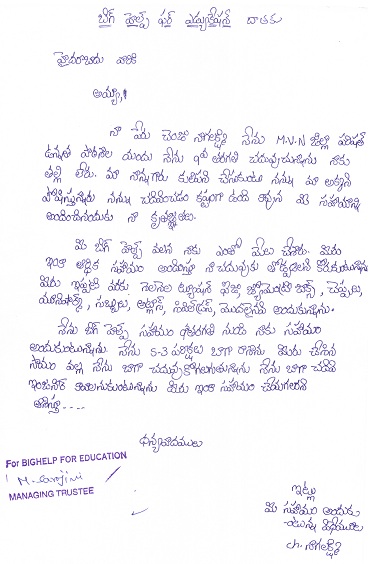 బిగ్ హెల్ప్ ఫర్ ఎడ్యుకేషన్ దాతకు
హైదరాబాదు వారికి
అమ్మా,
నా పేరు చెంచు నాగలక్ష్మి నేను M.V.N జిల్లా పరిషత్
ఉన్నత పాఠశాల యందు నేను 9వ తరగతి చదువుచున్నాను నాకు
తల్లి లేరు. మా నాన్నగారు కూలిపని చేసుకుంటూ నన్ను మా అక్కని
పోషిస్తున్నారు నన్ను చదివించడం కష్టంగా ఉంది కావున మీరు సహాయాన్ని
అందించినందుకు నా కృతజ్ఞతలు.
మీ బిగ్ హెల్ప్ వలన నాకు ఎంతో మేలు చేశారు. మీరు
ఇలా ఆర్థిక సహాయం అందిస్తూ నా చదువుకు తోడ్పడాలని కోరుకుంటున్నాను
మీరు ఇప్పటి వరకు నెలనెల ట్యూషన్ ఫీజు జ్యామెంట్రీ బాక్స్, చెప్పులు,
యూనిఫామ్స్, సబ్బులు, అట్లాస్, మొదలైనవి అందుకున్నాను.
నేను బిగ్ హెల్ప్ సహాయం తరగతి నుండి నాకు సహాయం
అందుకుంటున్నాను నేను S-3 పరీక్షలు బాగా రాశాను మీరు చేసిన
సాయం వల్ల నేను బాగా చదువుకోగలుగుతున్నాను నేను బాగా చదివి
ఇంజనీర్ కావాలనుకుంటున్నాను మీరు ఇలా సహాయం చేయగలరని
ఆశిస్తూ - - - -
ధన్యవాదములు
For BIGHELP FOR EDUCATION
M. Sarojini
MANAGING TRUSTEE
ఇట్లు
మీ సహాయం అందుకు
-ంటున్న విధేయురాలు
ch. నాగలక్ష్మి